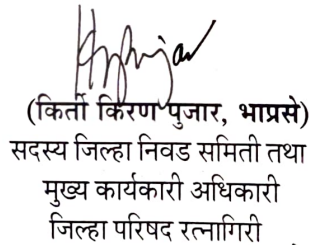 (किर्ती किरण पुजार, भाप्रसे)
सदस्य जिल्हा निवड समिती तथा
मुख्य कार्यकारी अधिकारी
जिल्हा परिषद रत्नागिरी